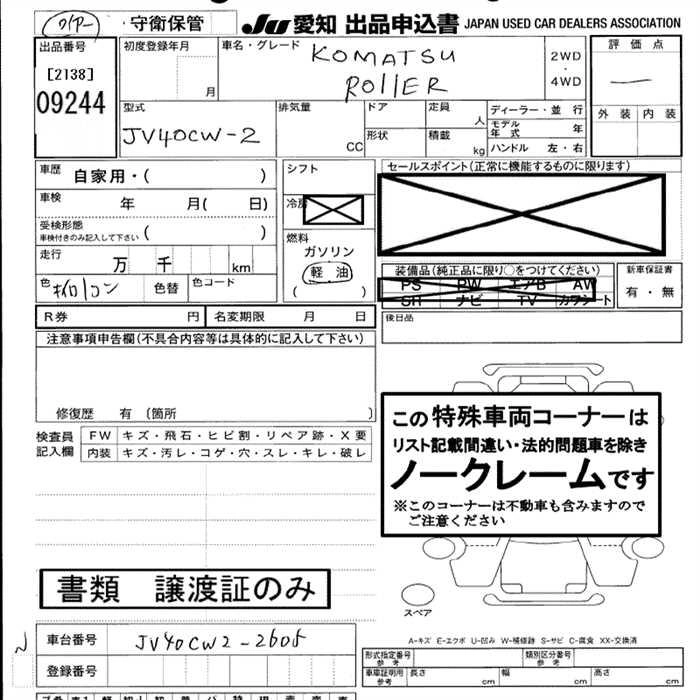 守衛保管
JU 愛知 出品申込書 JAPAN USED CAR DEALERS ASSOCIATION
出品番号
[2138]
09244
初度登録年月
月
車名・グレード
KOMATSU
ROLLER
2WD
・
4WD
評価点
外装 内装
型式
JV40CW-2
排気量
CC
ドア
形状
定員
人
積載
kg
ディーラー・並行
モデル年式 年
ハンドル 左・右
車歴 自家用・( )
車検 年 月( 日)
受検形態
車検付きのみ記入して下さい ( )
走行 万 千 km
色
色替
色コード
シフト
冷房
燃料
ガソリン
軽油
( )
セールスポイント(正常に機能するものに限ります)
装備品(純正品に限り○をつけてください)
PS PW エアB AW
SR ナビ TV カワシート
新車保証書
有・無
R券 円
名変期限 月 日
後日品
注意事項申告欄(不具合内容等は具体的に記入して下さい)
修復歴 有 〔箇所 〕
検査員
記入欄
FW キズ・飛石・ヒビ割・リペア跡・X要
内装 キズ・汚レ・コゲ・穴・スレ・キレ・破レ
この特殊車両コーナーは
リスト記載間違い・法的問題車を除き
ノークレームです
※このコーナーは不動車も含みますので
ご注意ください
書類 譲渡証のみ
スペア
A-キズ E-エクボ U-凹み W-補修跡 S-サビ C-腐食 XX-交換済
車台番号 JV40CW2-2605
登録番号
形式指定番号
参考
類別区分番号
参考
車庫証明用
参考
長さ
幅
高さ
cm